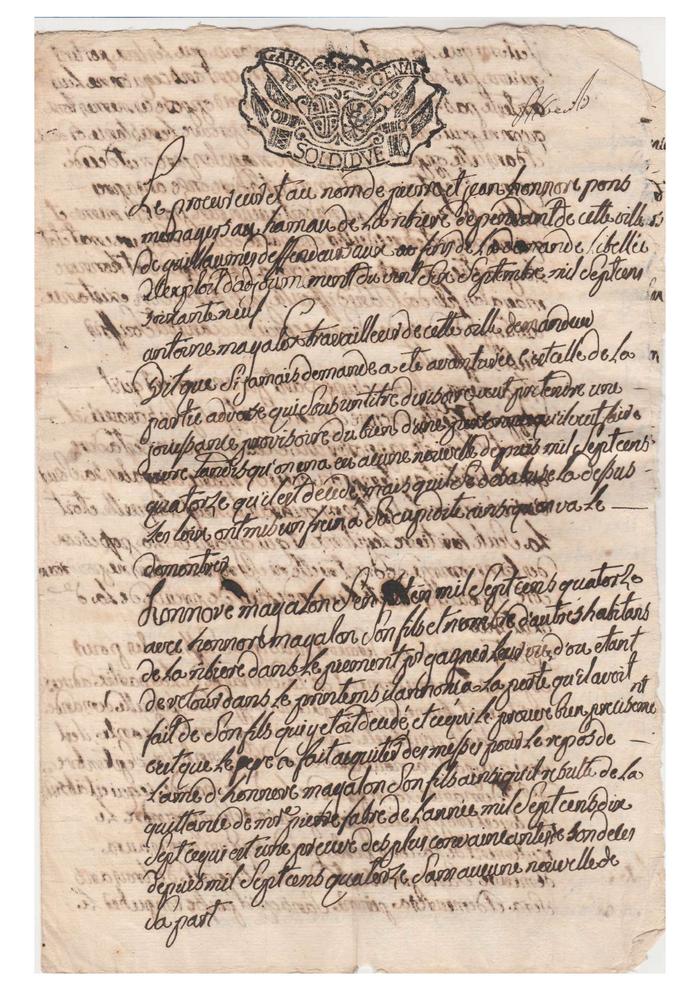 GABEL GENAL
SOLDI DVE
Le procureur et au nom de pierre et jean honnore pons
menagers au hamau de La ribiere dependant de cette ville
de guillaumes deffendeurs aux fins de La demande libellée
dexploit dadjournement du vent six Septembre mil Sept cens
soixante neuf
antoine magalon travailleur de cette ville demandeur
Dit que Si jamais demande a eté avanturée c'est celle de La
partie adverse qui sous un titre derisoire veut pretendre une
jouissance provisoire du bien d'une qu'il veut faire
vivre tandis qu'on en a eu aucune nouvelle depuis mil Sept cens
quatorze qu'il est decedé mais qu'il se desabuse la dessus
Les loix ont mis un frein a sa cupidité ainsi qu'on va Le
demontrer
honnore magalon S'en en mil Sept cens quatorze
avec honnore magalon Son fils et nombre d'autres habitans
de La ribiere dans Le piemont pr gagner Leur vie d'ou etant
de retour dans Le printems il annonca La perte qu'il avoit
fait de Son fils qui y etoit decedé et ce qui Le prouve bien precisement
c'est que Le pere a fait aquiter des messes pour Le repos de
L'ame d'honnore magalon Son fils ainsi qu'il resulte de La
quittance de mre pierre fabre de L'année mil Sept cens dix
Sept ce qui est une preuve des plus convaincantes de Son deces
depuis mil Sept cens quatorze Sans aucune nouvelle de
Sa part